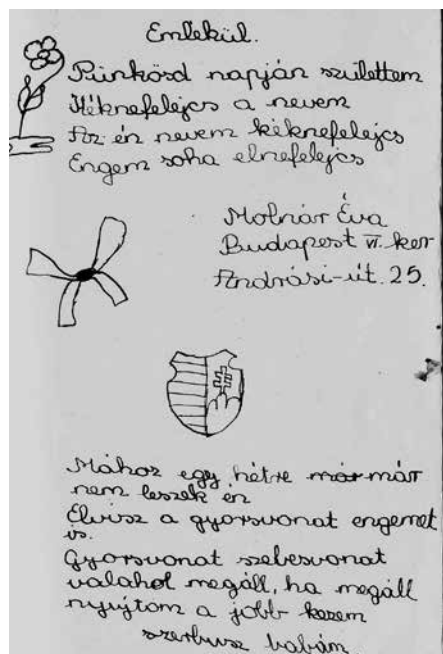 Emlékül.
Pünkösd napján születtem
Kéknefelejcs a nevem
Az én nevem kéknefelejcs
Engem soha elnefelejcs
Molnár Éva
Budapest VI. ker
Andrási-út. 25.
Mához egy hétre már már
nem leszek én
Elvisz a gyorsvonat engemet
is.
Gyorsvonat sebesvonat
valahol megáll, ha megáll
nyújtom a jobb kezem
szerbusz babám